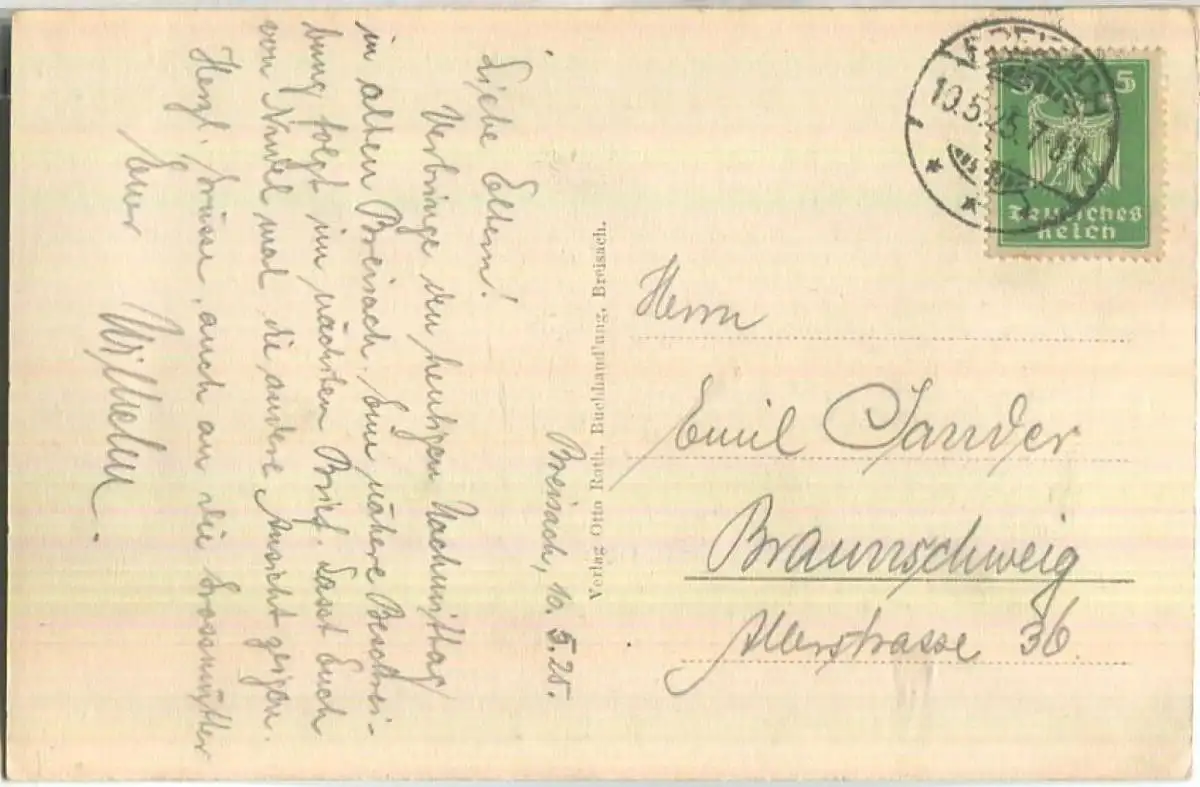 Breisach, 10. 5. 25.
Liebe Eltern!
Verbringe den heutigen Nachmittag
in alten Breisach. Eine nähere Beschrei-
bung folgt im nächsten Brief. Lasst Euch
von mal die andere Ansicht zeigen.
Herzl. Grüsse, auch an die Grossmütter
Euer
Wilhelm.
Verlag Otto Roth, Buchhandlung, Breisach.
10.5.25.7-8
5
Deutsches
Reich
Herrn
Emil Sander
Braunschweig
Allerstrasse 36